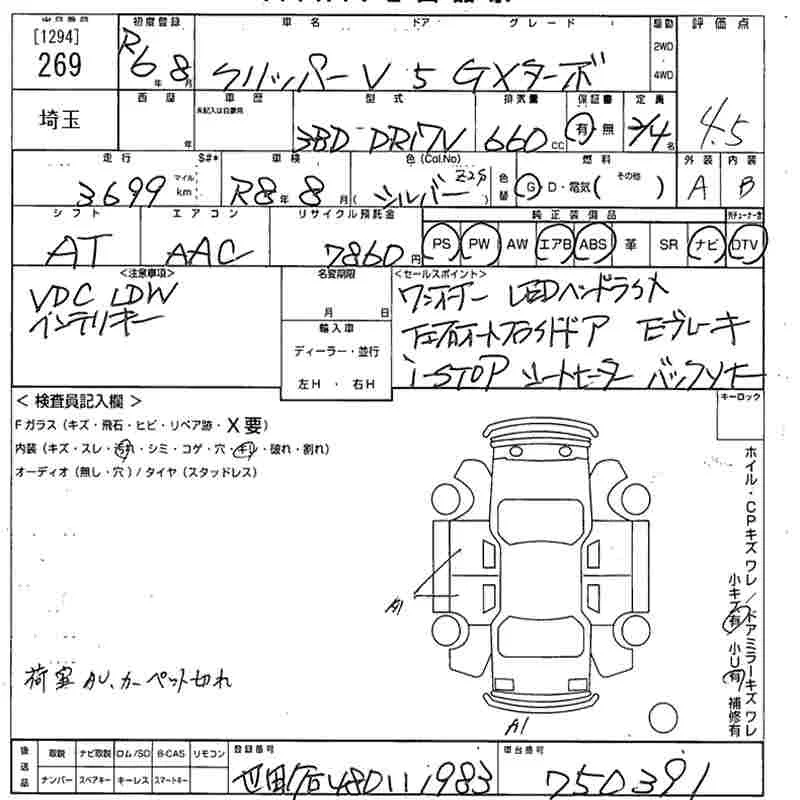 出品番号 初度登録 車名 ドア グレード 駆動 評価点
[1294] 269
R6年8月
クリッパーV 5 GXターボ
2WD
4WD
4.5
埼玉
西歴 年
車歴
未記入は自家用
型式 3BD-DR17V
排気量 660cc
保証書 有・無
定員 2/4名
走行 3699 マイル km
S#*
車検 R8年8月
色(Col.No) (シルバー Z2S)
色替
燃料 G D・電気( その他 )
外装 A
内装 B
シフト AT
エアコン AAC
リサイクル預託金 7860円
純正装備品
PS PW AW エアB ABS 革 SR ナビ
DTV
<注意事項>
VDC LDW
インテリキー
名変期限
月 日
輸入車
ディーラー・並行
左H ・ 右H
<セールスポイント>
ワンオーナー LEDヘッドライト
左右オートスライドドア Eブレーキ
i-STOP シートヒーター バックソナー
キーロック
<検査員記入欄>
Fガラス(キズ・飛石・ヒビ・リペア跡・X要)
内装(キズ・スレ・汚れ・シミ・コゲ・穴・キリ・破れ・割れ)
オーディオ(無し・穴)/タイヤ(スタッドレス)
A1
A1
荷室 AU、カーペット切れ
ホイル・CPキズ ワレ/ドアミラーキズ ワレ
小キズ有 小U有 補修有
後送品
取説 ナビ取説 ロム/SD B-CAS リモコン
ナンバー スペアキー キーレス スマートキー
登録番号 世田谷480 1983
車台番号 750391